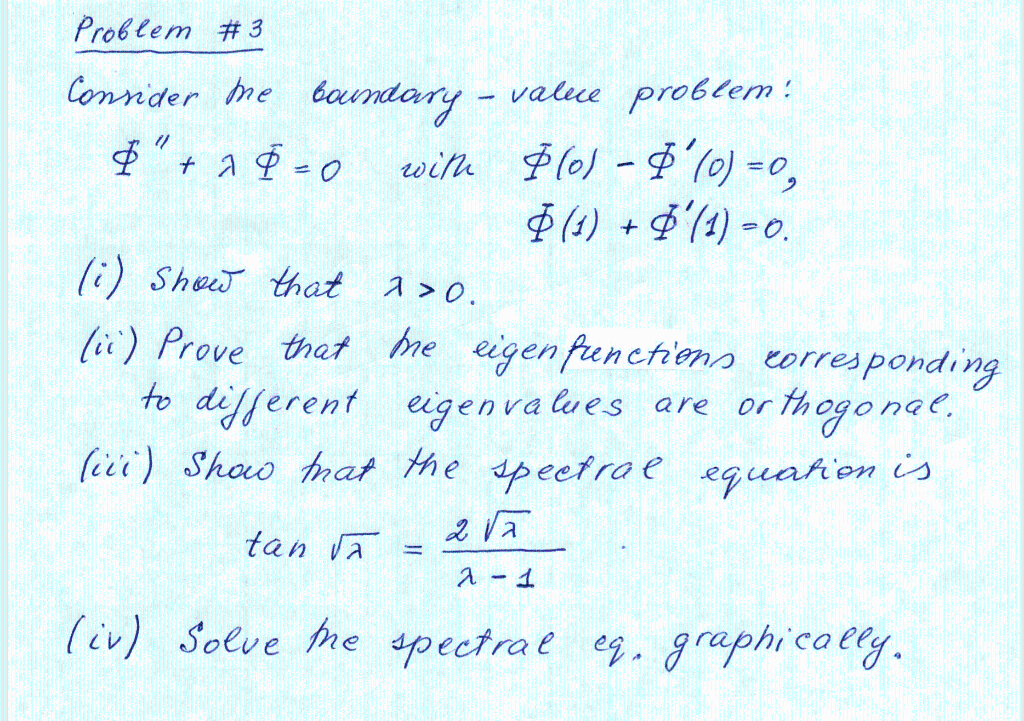 Problem #3
Consider the boundary-value problem:
Φ'' + λΦ = 0 with Φ(0) - Φ'(0) = 0,
Φ(1) + Φ'(1) = 0.
(i) Show that λ > 0.
(ii) Prove that the eigenfunctions corresponding
to different eigenvalues are orthogonal.
(iii) Show that the spectral equation is
tan √λ = 2√λ / λ - 1
(iv) Solve the spectral eq. graphically.